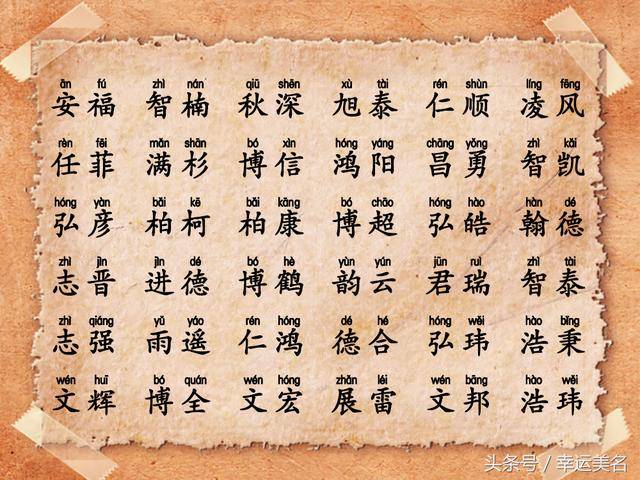 ān fú zhì nán qiū shēn xù tài rén shùn líng fēng
安福 智楠 秋深 旭泰 仁顺 凌风
rèn fēi mǎn shān bó xìn hóng yáng chāng yǒng zhì kǎi
任菲 满杉 博信 鸿阳 昌勇 智凯
hóng yàn bǎi kē bǎi kāng bó chāo hóng hào hàn dé
弘彦 柏柯 柏康 博超 弘皓 翰德
zhì jìn jìn dé bó hè yùn yún jūn ruì zhì tài
志晋 进德 博鹤 韵云 君瑞 智泰
zhì qiáng yǔ yáo rén hóng dé hé hóng wěi hào bǐng
志强 雨遥 仁鸿 德合 弘玮 浩秉
wén huī bó quán wén hóng zhǎn léi wén bāng hào wěi
文辉 博全 文宏 展雷 文邦 浩玮
头条号 / 幸运美名